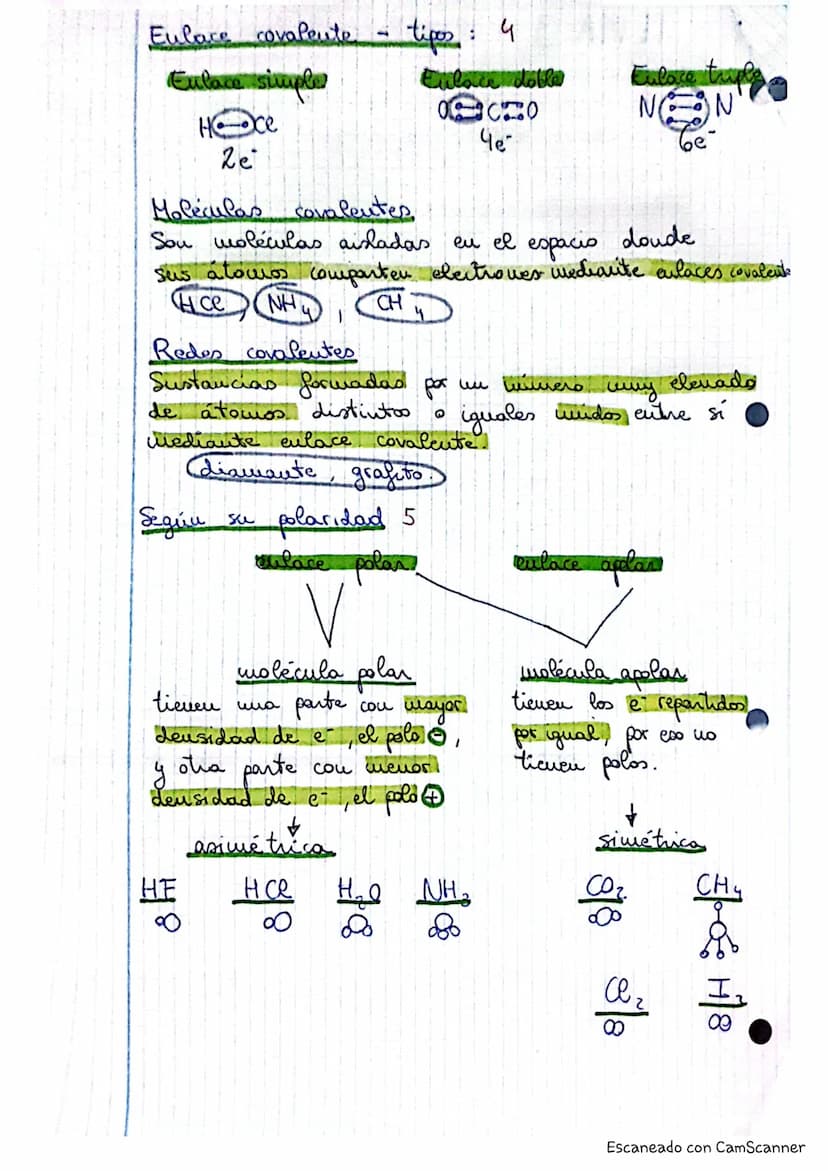 Enlace covalente - tipos: 4
Enlace simple Enlace doble Enlace triple
H-Cl O=C=O N≡N
2e⁻ 4e⁻ 6e⁻
Moléculas covalentes.
Son moléculas aisladas en el espacio donde
sus átomos comparten electrones mediante enlaces covalente
HCl, NH₄, CH₄
Redes covalentes
Sustancias formadas por un número muy elevado
de átomos distintos o iguales unidos entre sí
mediante enlace covalente.
diamante, grafito.
Según su polaridad 5
enlace polar enlace apolar
molécula polar
tienen una parte con mayor
densidad de e⁻, el polo ⊖,
y otra parte con menor
densidad de e⁻, el polo ⊕
asimétrica
HF HCl H₂O NH₃
molécula apolar
tienen los e⁻ repartidos
por igual, por eso no
tienen polos.
simétrica
CO₂ CH₄
Cl₂ I₂
Escaneado con CamScanner